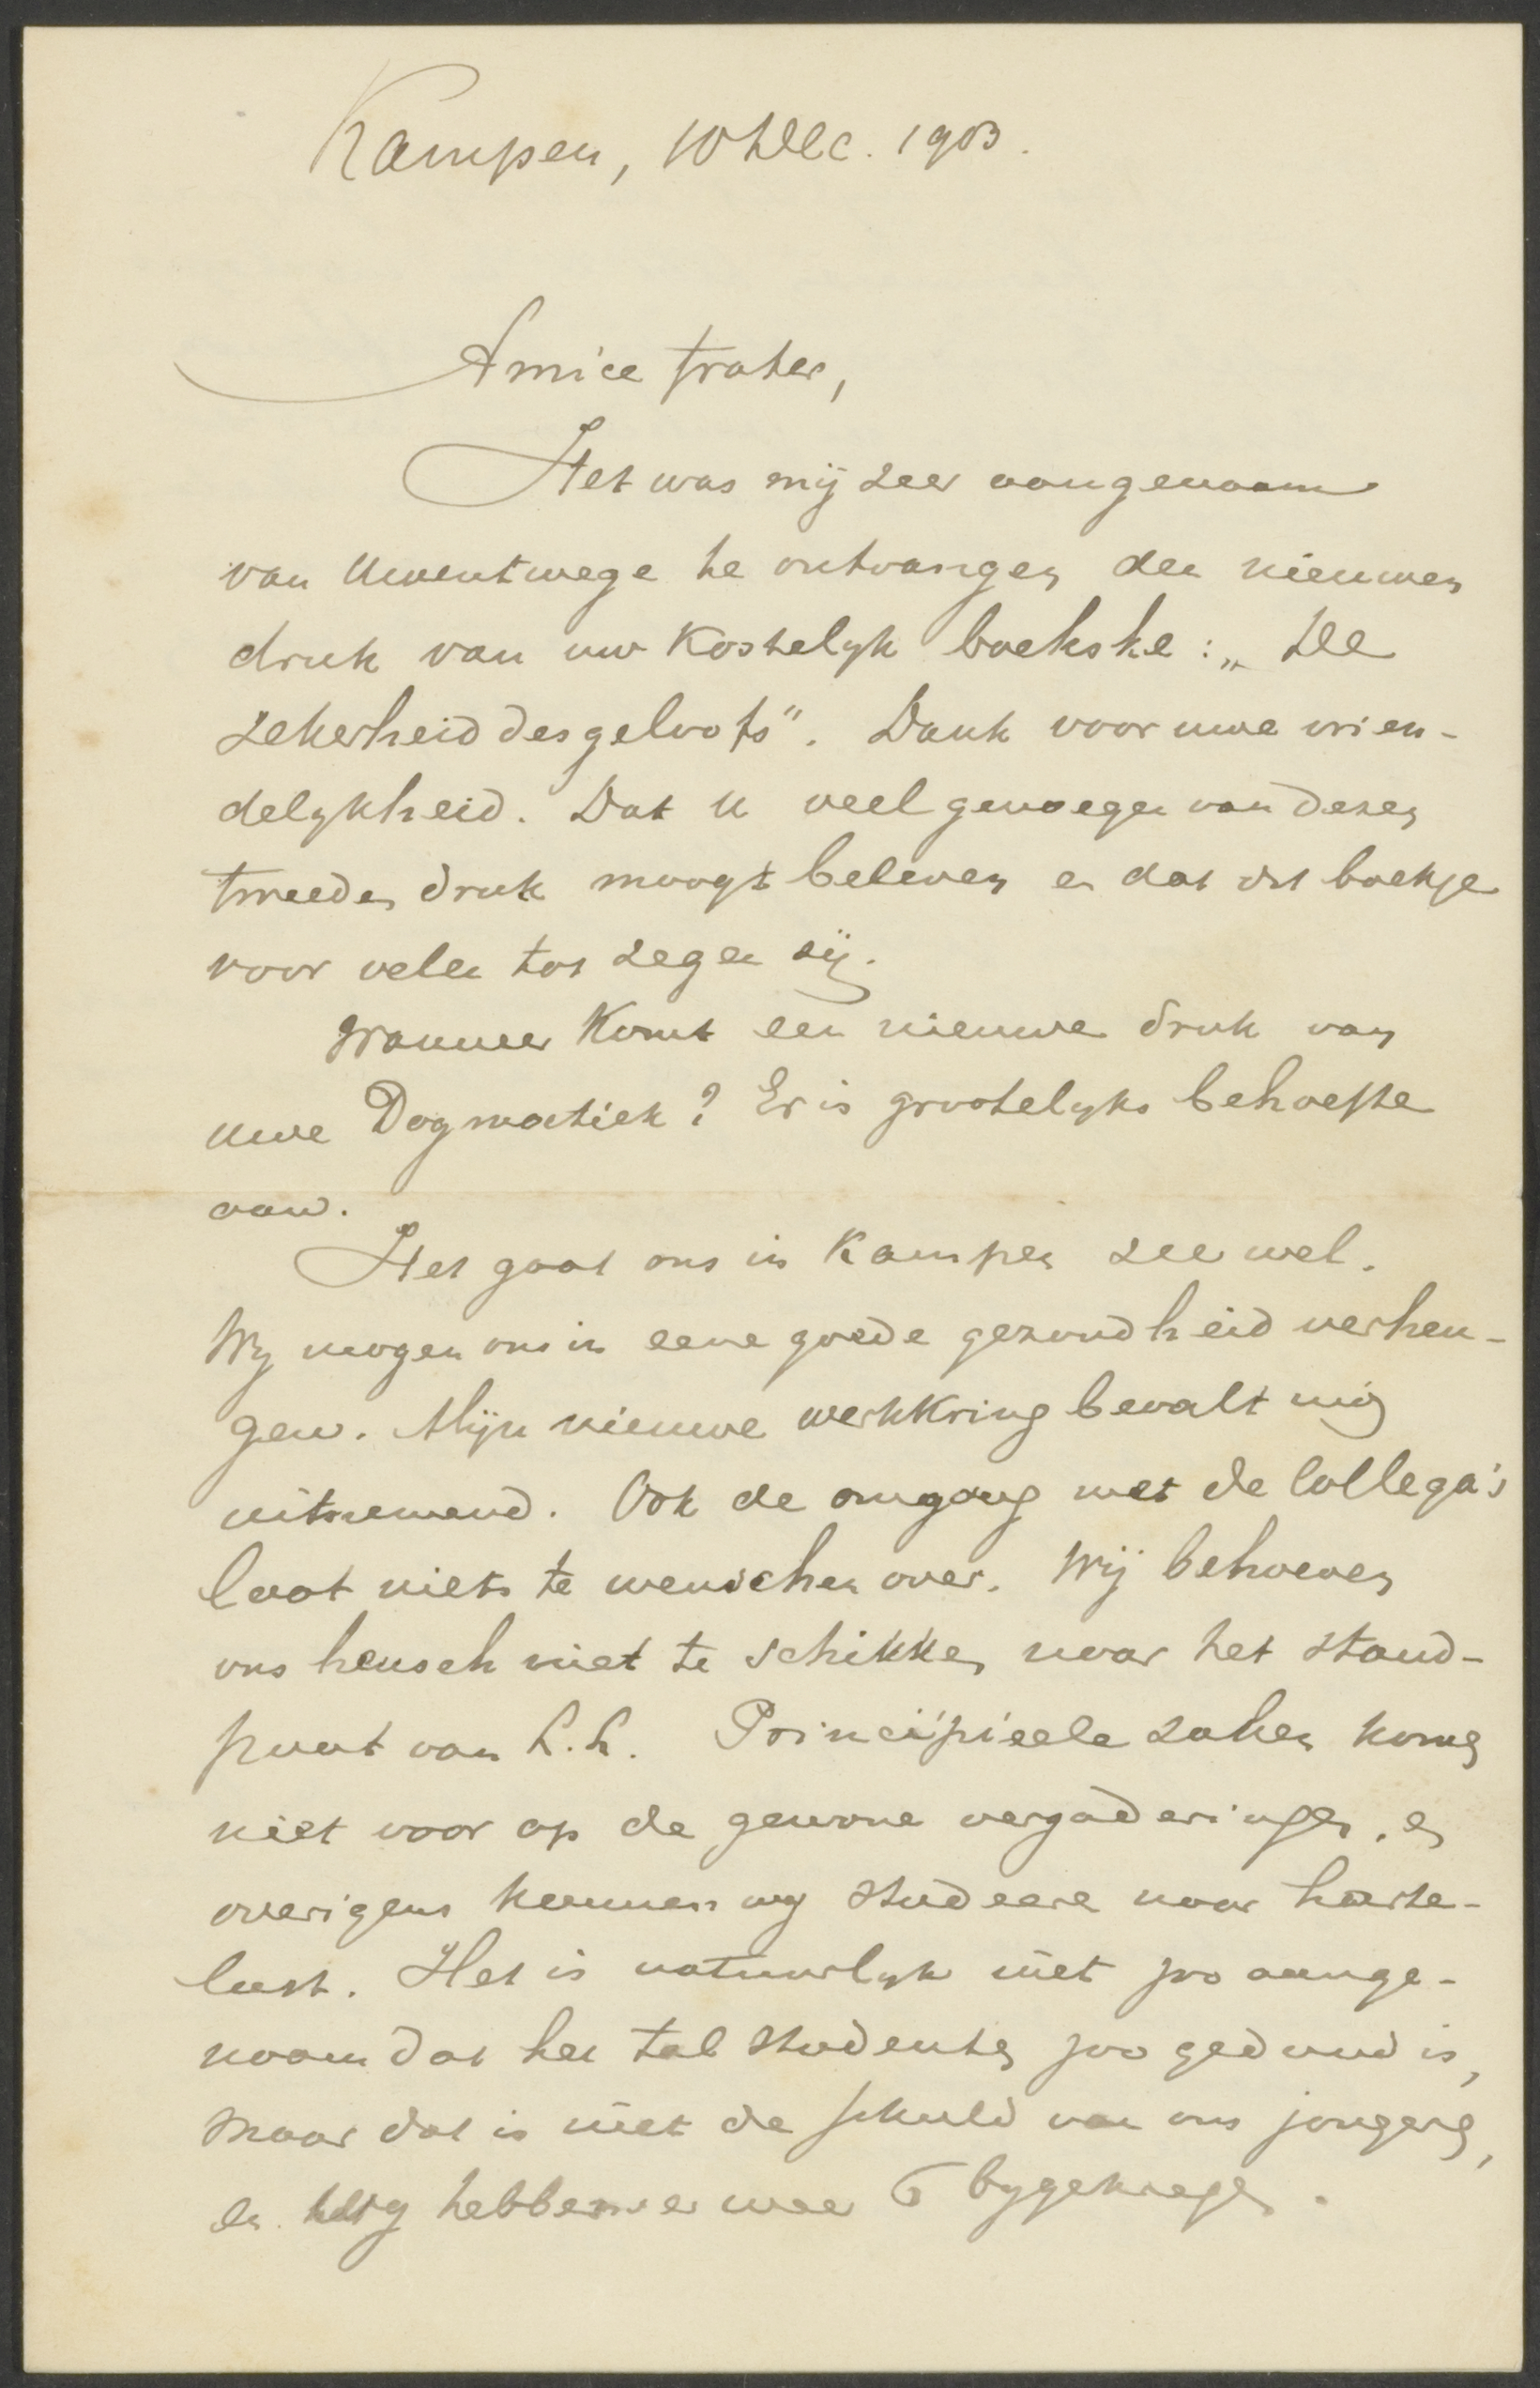 Kampen, 10 Dec. 1903.
Amice frater,
Het was mij zeer aangenaam
van Uwentwege te ontvangen den nieuwen
druk van uw kostelyk boekske: „De
zekerheid des geloofs". Dank voor uwe vrien-
delykheid. Dat U veel genoegen van dezen
tweeden druk moogt beleven en dat dit boekje
voor velen tot zegen zij.
Wanneer komt een nieuwe druk van
uwe Dogmatiek? Er is grootelyks behoefte
aan.
Het gaat ons in Kampen zeer wel.
Wy mogen ons in eene goede gezondheid verheu-
gen. Mijn nieuwe werkkring bevalt mij
uitnemend. Ook de omgang met de Collega's
laat niets te wenschen over. Wij behoeven
ons heusch niet te schikken naar het stand-
punt van L.L. Principieele zaken komen
niet voor op de gewone vergaderingen, en
overigens kunnen wy studeeren naar harte-
lust. Het is natuurlyk niet zoo aange-
naam dat het tal studenten zoo gedund is,
maar dat is niet de schuld van ons jongeren,
en wy hebben er weer 6 bygekregen.